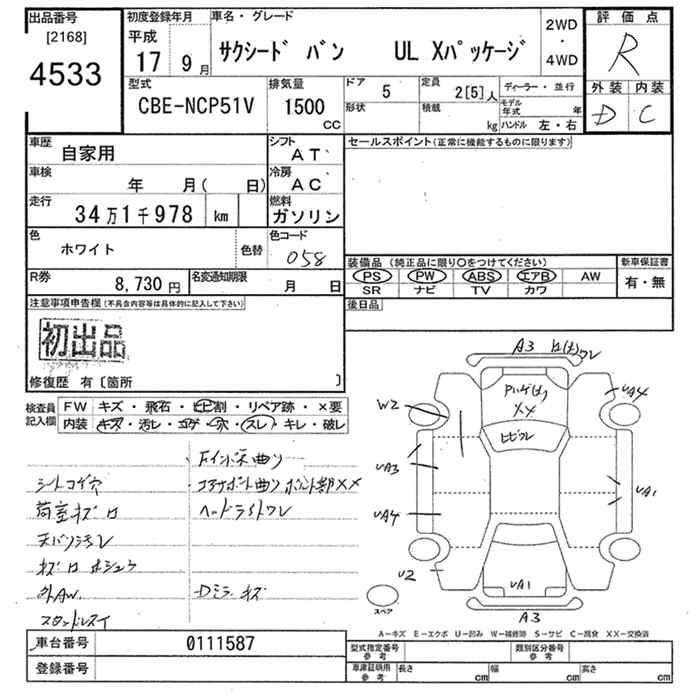 出品番号
[2168]
4533
初度登録年月
平成
17年 9月
車名・グレード
サクシード バン UL Xパッケージ
2WD
・
4WD
評価点
R
外装 内装
D C
型式
CBE-NCP51V
排気量
1500
CC
ドア 5
形状
定員 2[5]人
積載 kg
ディーラー・並行
モデル年式 年
ハンドル 左・右
車歴
自家用
シフト
AT
車検
年 月( 日)
冷房
AC
走行
34万1千978 km
燃料
ガソリン
色
ホワイト
色替
色コード
058
R券
8,730円
名変通知期限
月 日
セールスポイント(正常に機能するものに限ります)
装備品(純正品に限り○をつけてください)
PS PW ABS エアB AW
SR ナビ TV カワ
新車保証書
有・無
後日品
注意事項申告欄(不具合内容等は具体的に記入して下さい)
初出品
修復歴 有〔箇所 〕
検査員記入欄
FW キズ・飛石・ヒビ割・リペア跡・×要
内装 キズ・汚レ・コゲ・穴・スレ・キレ・破レ
シートコゲ穴
荷室キズ
天バリ汚レ
外AW.
スタッドレス
コアサポート曲り ボルト部XX
ヘッドライトワレ
Dミラーキズ
A3
ワレ
XX
W2
UA4
ヒビワレ
UA3
UA1
UA4
U2
UA1
A3
スペア
A−キズ E−エクボ U−凹み W−補修跡 S−サビ C−腐食 XX−交換済
車台番号 0111587
登録番号
型式指定番号
参考
類別区分番号
参考
車庫証明用
参考
長さ cm 幅 cm 高さ cm